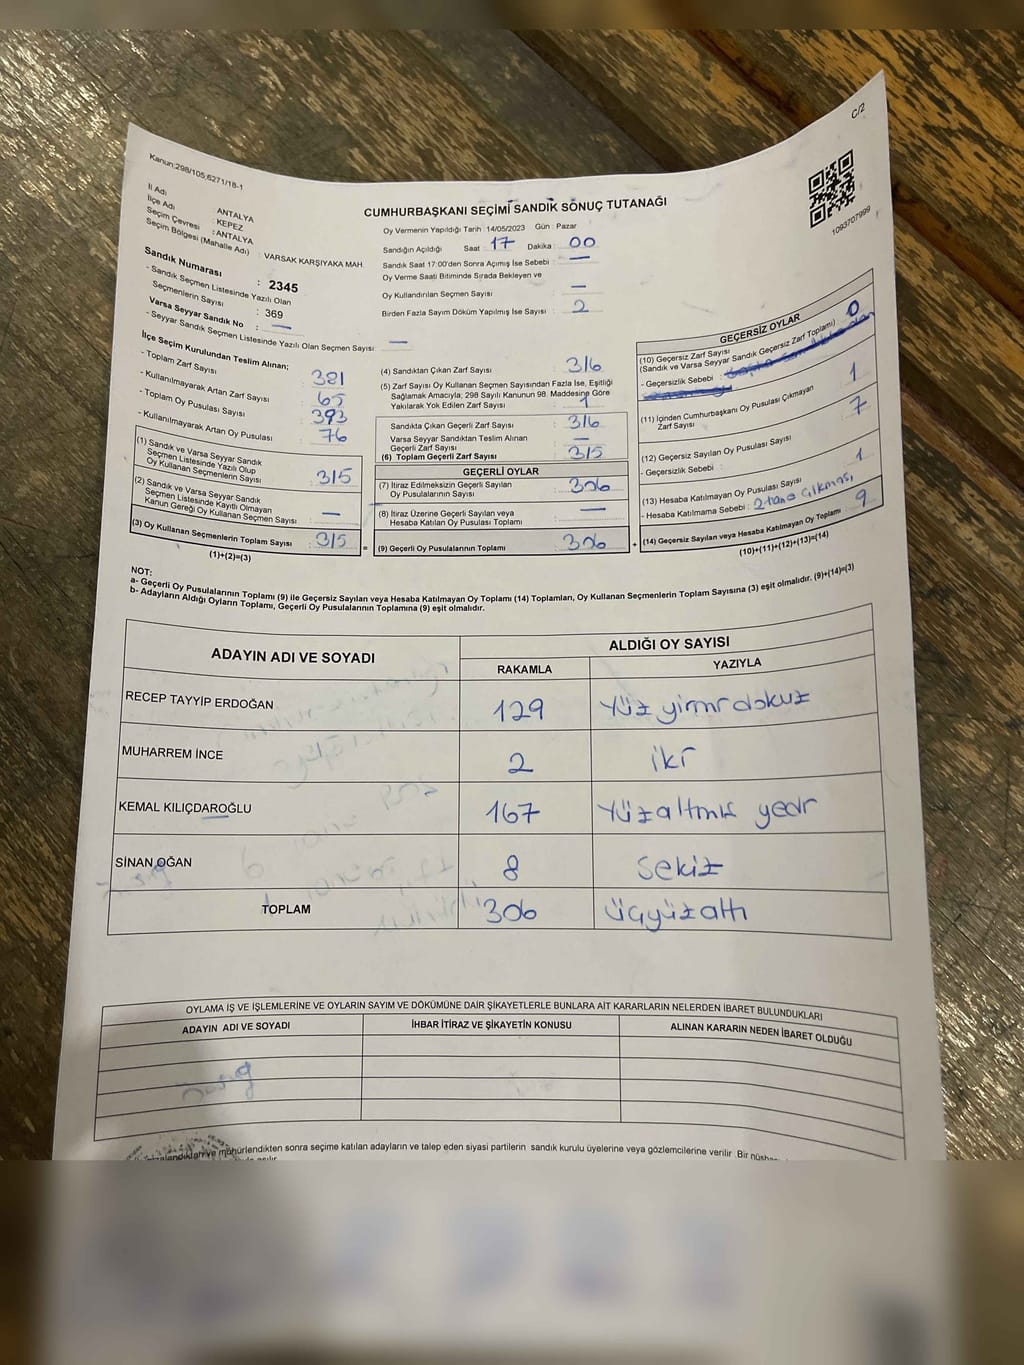 C/2
Kanun:298/105,6271/18-1
1093707999
CUMHURBAŞKANI SEÇİMİ SANDIK SONUÇ TUTANAĞI
İl Adı : ANTALYA
İlçe Adı : KEPEZ
Seçim Çevresi : ANTALYA
Seçim Bölgesi (Mahalle Adı) : VARSAK KARŞIYAKA MAH.
Sandık Numarası : 2345
- Sandık Seçmen Listesinde Yazılı Olan
Seçmenlerin Sayısı : 369
Varsa Seyyar Sandık No : —
- Seyyar Sandık Seçmen Listesinde Yazılı Olan Seçmen Sayısı: —
Oy Vermenin Yapıldığı Tarih 14/05/2023 Gün : Pazar
Sandığın Açıldığı Saat : 17 Dakika : 00
Sandık Saat 17:00'den Sonra Açımış İse Sebebi : —
Oy Verme Saati Bitiminde Sırada Bekleyen ve
Oy Kullandırılan Seçmen Sayısı : —
Birden Fazla Sayım Döküm Yapılmış İse Sayısı : 2
İlçe Seçim Kurulundan Teslim Alınan;
- Toplam Zarf Sayısı : 381
- Kullanılmayarak Artan Zarf Sayısı : 65
- Toplam Oy Pusulası Sayısı : 393
- Kullanılmayarak Artan Oy Pusulası : 76
(1) Sandık ve Varsa Seyyar Sandık
Seçmen Listesinde Yazılı Olup
Oy Kullanan Seçmenlerin Sayısı : 315
(2) Sandık ve Varsa Seyyar Sandık
Seçmen Listesinde Kayıtlı Olmayan
Kanun Gereği Oy Kullanan Seçmen Sayısı : —
(3) Oy Kullanan Seçmenlerin Toplam Sayısı : 315
(1)+(2)=(3)
(4) Sandıktan Çıkan Zarf Sayısı : 316
(5) Zarf Sayısı Oy Kullanan Seçmen Sayısından Fazla İse, Eşitliği
Sağlamak Amacıyla; 298 Sayılı Kanunun 98. Maddesine Göre
Yakılarak Yok Edilen Zarf Sayısı : 1
Sandıkta Çıkan Geçerli Zarf Sayısı : 316
Varsa Seyyar Sandıktan Teslim Alınan
Geçerli Zarf Sayısı : —
(6) Toplam Geçerli Zarf Sayısı : 315
GEÇERLİ OYLAR
(7) İtiraz Edilmeksizin Geçerli Sayılan
Oy Pusulalarının Sayısı : 306
(8) İtiraz Üzerine Geçerli Sayılan veya
Hesaba Katılan Oy Pusulası Toplamı : —
= (9) Geçerli Oy Pusulalarının Toplamı : 306
GEÇERSİZ OYLAR
(10) Geçersiz Zarf Sayısı
(Sandık ve Varsa Seyyar Sandık Geçersiz Zarf Toplamı) 0
- Geçersizlik Sebebi :
(11) İçinden Cumhurbaşkanı Oy Pusulası Çıkmayan
Zarf Sayısı : 1
(12) Geçersiz Sayılan Oy Pusulası Sayısı : 7
- Geçersizlik Sebebi :
(13) Hesaba Katılmayan Oy Pusulası Sayısı : 1
- Hesaba Katılmama Sebebi : 2 tane çıkması
+ (14) Geçersiz Sayılan veya Hesaba Katılmayan Oy Toplamı : 9
(10)+(11)+(12)+(13)=(14)
NOT:
a- Geçerli Oy Pusulalarının Toplamı (9) ile Geçersiz Sayılan veya Hesaba Katılmayan Oy Toplamı (14) Toplamları, Oy Kullanan Seçmenlerin Toplam Sayısına (3) eşit olmalıdır. (9)+(14)=(3)
b- Adayların Aldığı Oyların Toplamı, Geçerli Oy Pusulalarının Toplamına (9) eşit olmalıdır.
ADAYIN ADI VE SOYADI ALDIĞI OY SAYISI
RAKAMLA YAZIYLA
RECEP TAYYİP ERDOĞAN 129 Yüz yirmi dokuz
MUHARREM İNCE 2 iki
KEMAL KILIÇDAROĞLU 167 Yüz altmış yedi
SİNAN OĞAN 8 Sekiz
TOPLAM 306 üçyüzaltı
OYLAMA İŞ VE İŞLEMLERİNE VE OYLARIN SAYIM VE DÖKÜMÜNE DAİR ŞİKAYETLERLE BUNLARA AİT KARARLARIN NELERDEN İBARET BULUNDUKLARI
ADAYIN ADI VE SOYADI İHBAR İTİRAZ VE ŞİKAYETİN KONUSU ALINAN KARARIN NEDEN İBARET OLDUĞU
mühürlendikten sonra seçime katılan adayların ve talep eden siyasi partilerin sandık kurulu üyelerine veya gözlemcilerine verilir .Bir